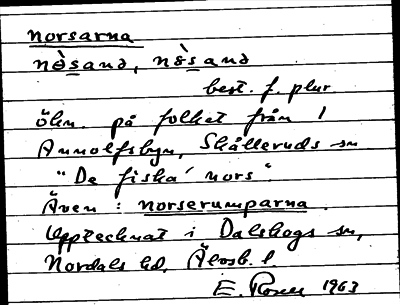 norsarna
nòsand, nòsand
best. f. plur.
ökn. på folket från
Annolfsbyn, Skålleruds sn
"De fiska' nors"
Även: norserumparna.
Upptecknat i Dalskogs sn,
Nordals hd, Älvsb. l.
E. Rosen 1963